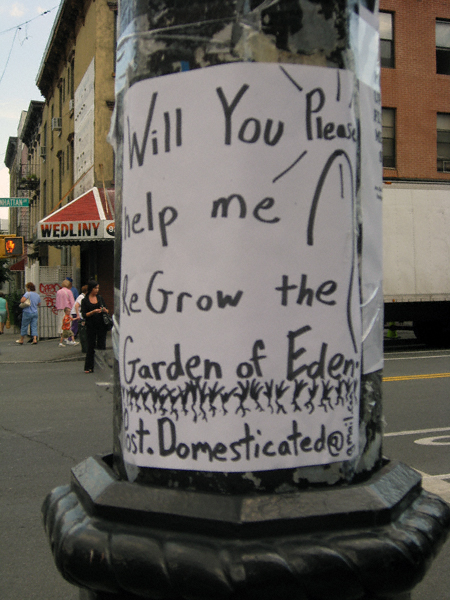 Will You Please
help me
ReGrow the
Garden of Eden.
Post.Domesticated@gmail.
WEDLINY